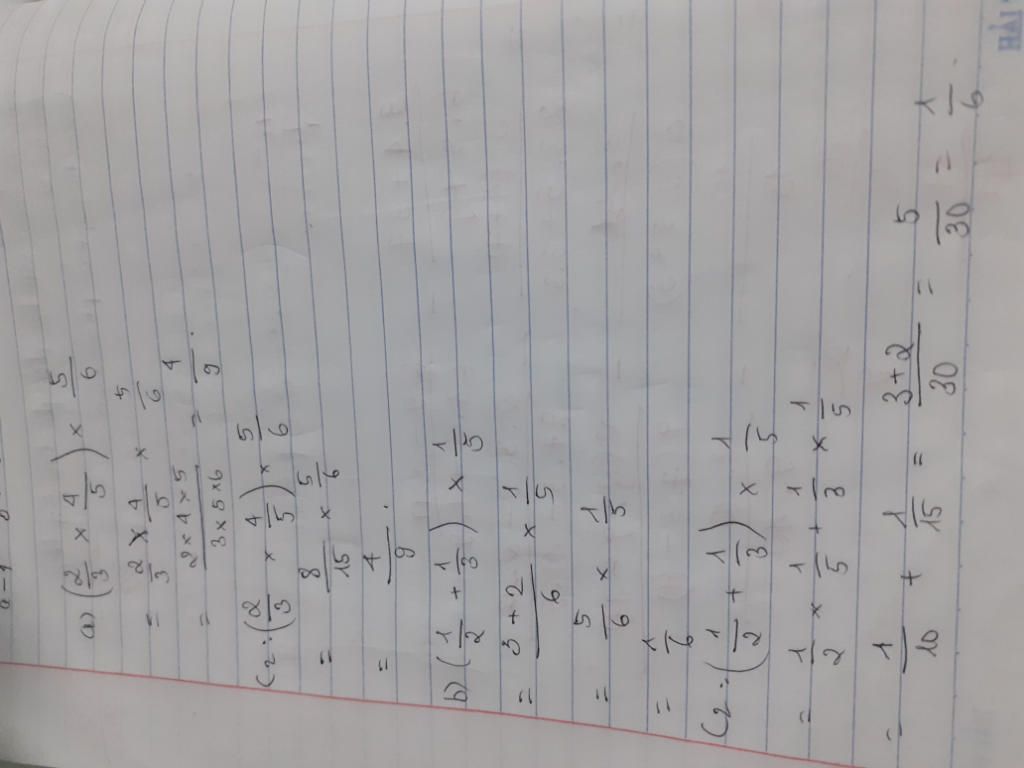 a) (2/3 × 4/5) × 5/6
= 2/3 × 4/5 × 5/6
= 2×4×5/3×5×6 = 4/9.
C2: (2/3 × 4/5) × 5/6
= 8/15 × 5/6
= 4/9.
b) (1/2 + 1/3) × 1/5
= 3+2/6 × 1/5
= 5/6 × 1/5
= 1/6
C2: (1/2 + 1/3) × 1/5
= 1/2 × 1/5 + 1/3 × 1/5
= 1/10 + 1/15 = 3+2/30 = 5/30 = 1/6.
HẢI